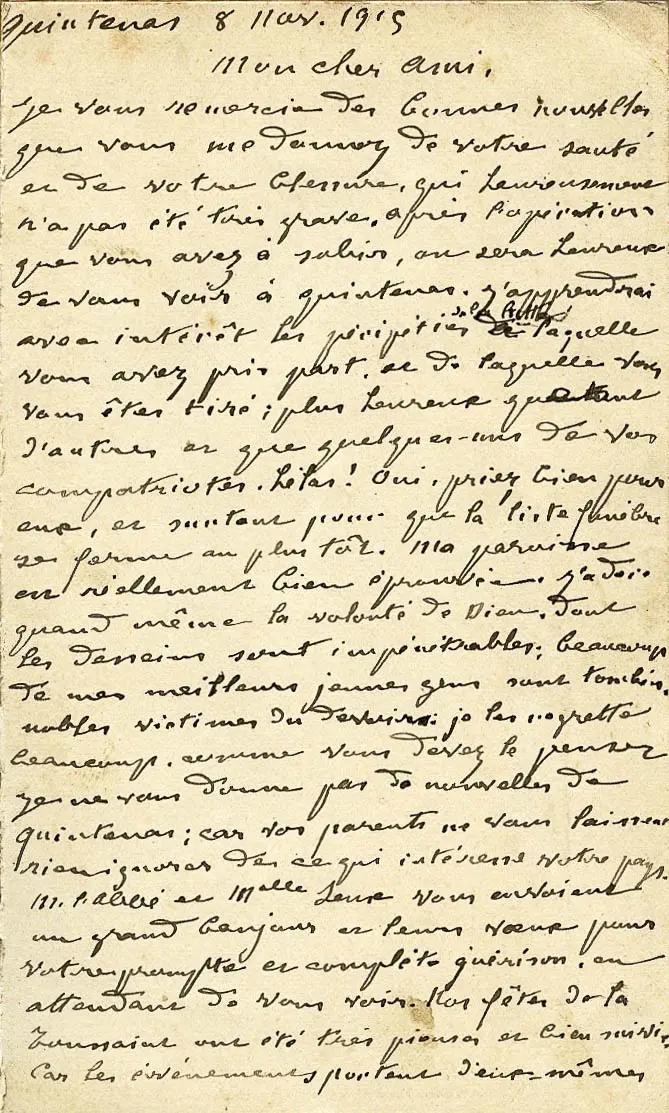 Quintenas 8 Nov. 1915
Mon cher Ami,
Je vous remercie des bonnes nouvelles
que vous me donnez de votre santé
et de votre blessure, qui heureusement
n'a pas été très grave. Après l'opération
que vous avez à subir, on sera heureux
de vous voir à Quintenas. J'apprendrai
avec intérêt les péripéties de la à laquelle
vous avez pris part, et de laquelle vous
vous êtes tiré; plus heureux que tant
d'autres et que quelques-uns de vos
compatriotes. Hélas! Oui, priez bien pour
eux, et surtout pour que la liste funèbre
se ferme au plus tôt. Ma paroisse
est réellement bien éprouvée. J'adore
quand même la volonté de Dieu, dont
les desseins sont impénétrables; beaucoup
de mes meilleurs jeunes gens sont tombés,
nobles victimes du devoir: je les regrette
beaucoup, comme vous devez le penser
Je ne vous donne pas de nouvelles de
Quintenas; car vos parents ne vous laissent
rien ignorer de ce qui intéresse votre pays.
M. l'Abbé et Melle vous envoient
un grand bonjour et leurs vœux pour
votre prompte et complète guérison, en
attendant de vous voir. Nos fêtes de la
Toussaint ont été très pieuses et bien suivies,
Car les événements portent d'eux-mêmes